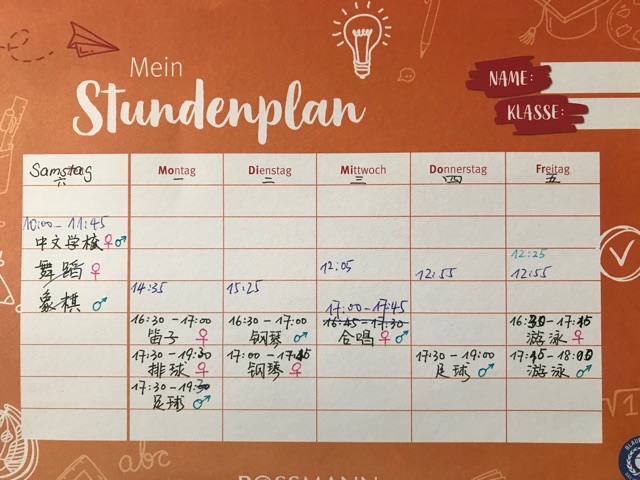 Mein
Stundenplan
NAME:
KLASSE:
Samstag Montag Dienstag Mittwoch Donnerstag Freitag
六 一 二 三 四 五
10:00 - 11:45
中文学校♀♂
舞蹈 ♀
象棋 ♂
14:35 15:25 12:05 12:55 12:25
12:55
16:30 - 17:00 16:30 - 17:00 17:00 - 17:45
16:45 - 17:30
笛子 ♀ 钢琴 ♂ 合唱 ♀♂ 游泳 ♀
17:30 - 19:30 17:00 - 17:45 17:30 - 19:00 17:45 - 18:00
排球 ♀ 钢琴 ♀ 足球 ♂ 游泳 ♂
17:30 - 19:30
足球 ♂
abc
ROSSMANN
√1